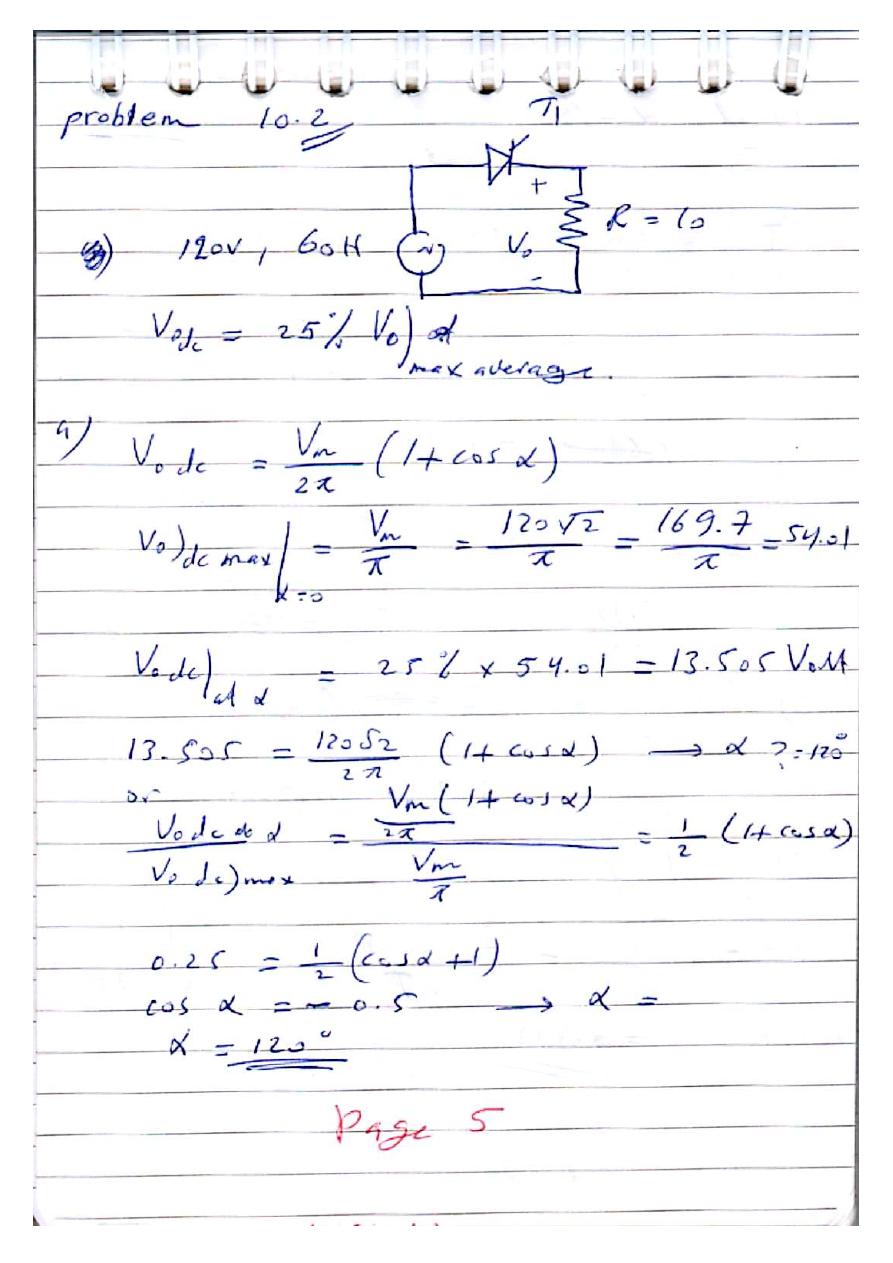 problem 10.2
T1
+
R = 10
120V, 60H
Vo
-
Vodc = 25% Vo)
max average.
a) Vo dc = Vm/2π (1 + cos α)
Vo)dc max|α=0 = Vm/π = 120√2/π = 169.7/π = 54.01
Vodc)at α = 25% x 54.01 = 13.505 Volt
13.505 = 120√2/2π (1+ cosα) → α ? = 120°
or
Vo dc α / Vo dc)max = Vm/2π (1+ cosα) / Vm/π = 1/2 (1+ cosα)
0.25 = 1/2 (cosα +1)
cos α = - 0.5 → α =
α = 120°
Page 5